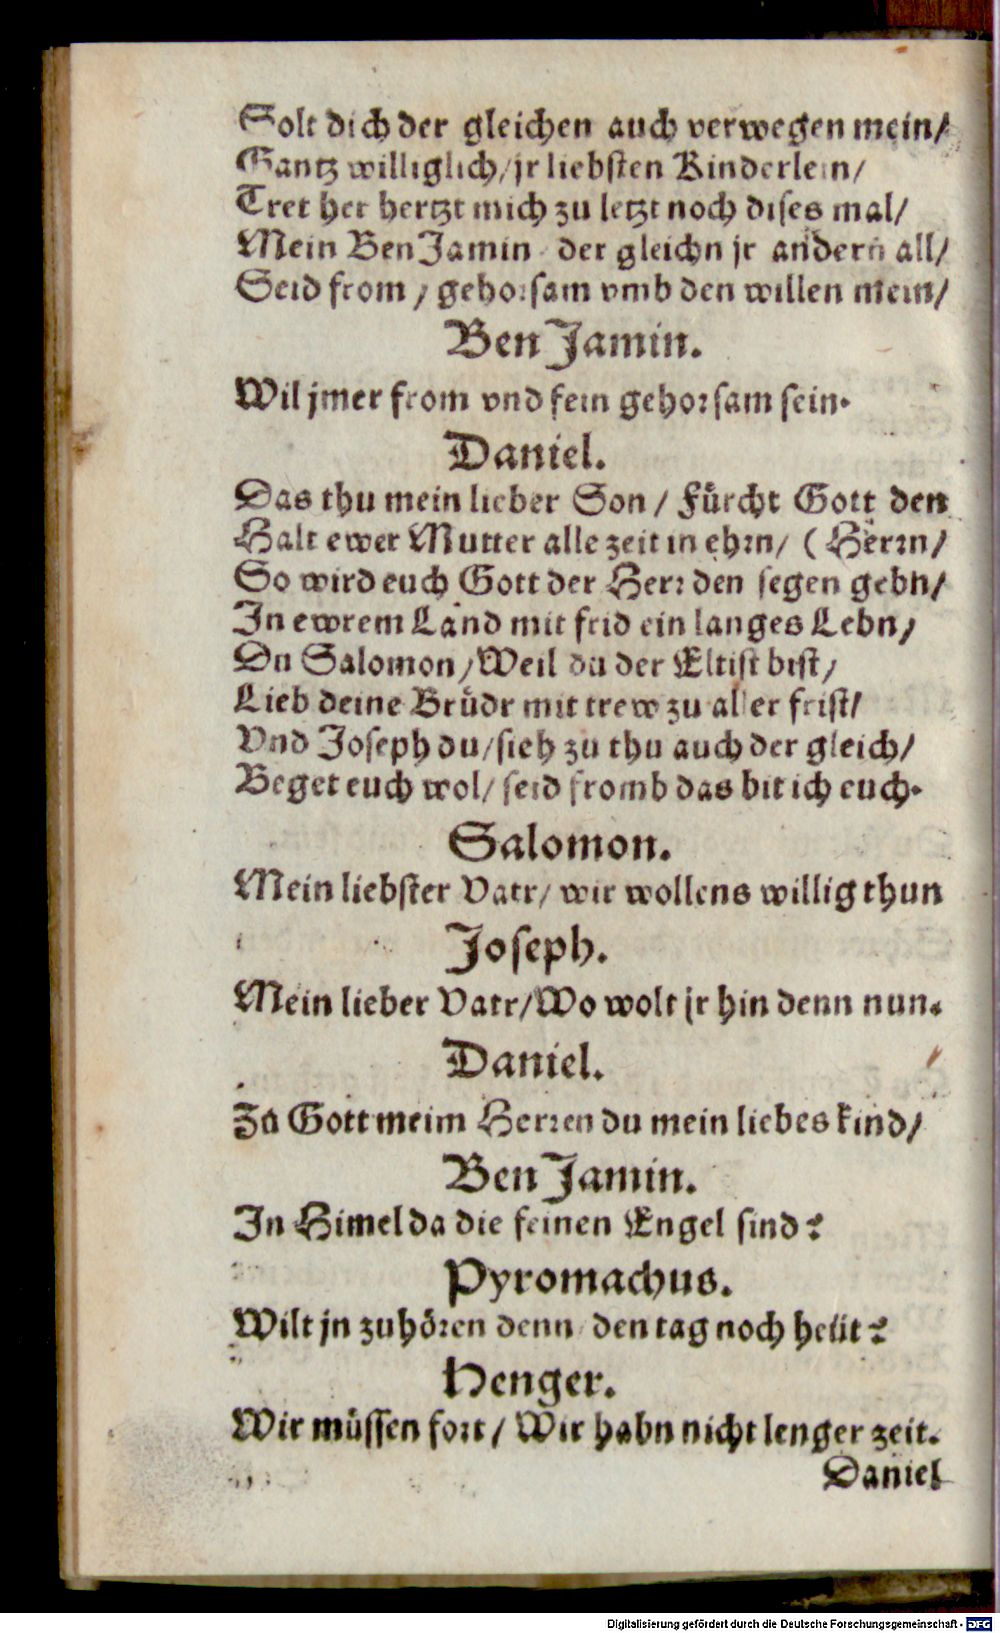 Solt dich der gleichen auch verwegen mein/
Gantz williglich/jr liebsten Kinderlein/
Tret her hertzt mich zu letzt noch dises mal/
Mein BenJamin der gleichn jr andern all/
Seid from / gehorsam vmb den willen mein/
Ben Jamin.
Wil jmer from vnd fein gehorsam sein.
Daniel.
Das thu mein lieber Son / Fürcht Gott den
Halt ewer Mutter alle zeit in ehrn/ (Herrn/
So wird euch Gott der Herr den segen gebn/
In ewrem Land mit frid ein langes Lebn/
Du Salomon/Weil du der Eltist bist/
Lieb deine Brüdr mit trew zu aller frist/
Vnd Joseph du/sieh zu thu auch der gleich/
Beget euch wol/ seid fromb das bit ich euch.
Salomon.
Mein liebster Vatr/ wir wollens willig thun
Joseph.
Mein lieber Vatr/Wo wolt jr hin denn nun.
Daniel.
Zu Gott meim Herren du mein liebes kind/
Ben Jamin.
In Himel da die feinen Engel sind?
Pyromachus.
Wilt jn zuhören denn den tag noch heüt?
Henger.
Wir müssen fort / Wir habn nicht lenger zeit.
Daniel
Digitalisierung gefördert durch die Deutsche Forschungsgemeinschaft - DFG